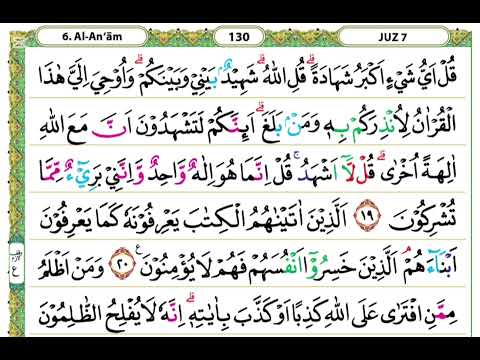 6. Al-An'ām 130 JUZ 7
قُلْ اَيُّ شَيْءٍ اَكْبَرُ شَهَادَةً ۗ قُلِ اللّٰهُ ۗ شَهِيْدٌۢ بَيْنِيْ وَبَيْنَكُمْ ۗ وَاُوْحِيَ اِلَيَّ هٰذَا
الْقُرْاٰنُ لِاُنْذِرَكُمْ بِهٖ وَمَنْۢ بَلَغَ ۗ اَىِٕنَّكُمْ لَتَشْهَدُوْنَ اَنَّ مَعَ اللّٰهِ
اٰلِهَةً اُخْرٰى ۗ قُلْ لَّآ اَشْهَدُ ۚ قُلْ اِنَّمَا هُوَ اِلٰهٌ وَّاحِدٌ وَّاِنَّنِيْ بَرِيْۤءٌ مِّمَّا
تُشْرِكُوْنَ ۝١٩ اَلَّذِيْنَ اٰتَيْنٰهُمُ الْكِتٰبَ يَعْرِفُوْنَهٗ كَمَا يَعْرِفُوْنَ
اَبْنَاۤءَهُمْ ۘ اَلَّذِيْنَ خَسِرُوْٓا اَنْفُسَهُمْ فَهُمْ لَا يُؤْمِنُوْنَ ۝٢٠ وَمَنْ اَظْلَمُ
مِمَّنِ افْتَرٰى عَلَى اللّٰهِ كَذِبًا اَوْ كَذَّبَ بِاٰيٰتِهٖ ۗ اِنَّهٗ لَا يُفْلِحُ الظّٰلِمُوْنَ